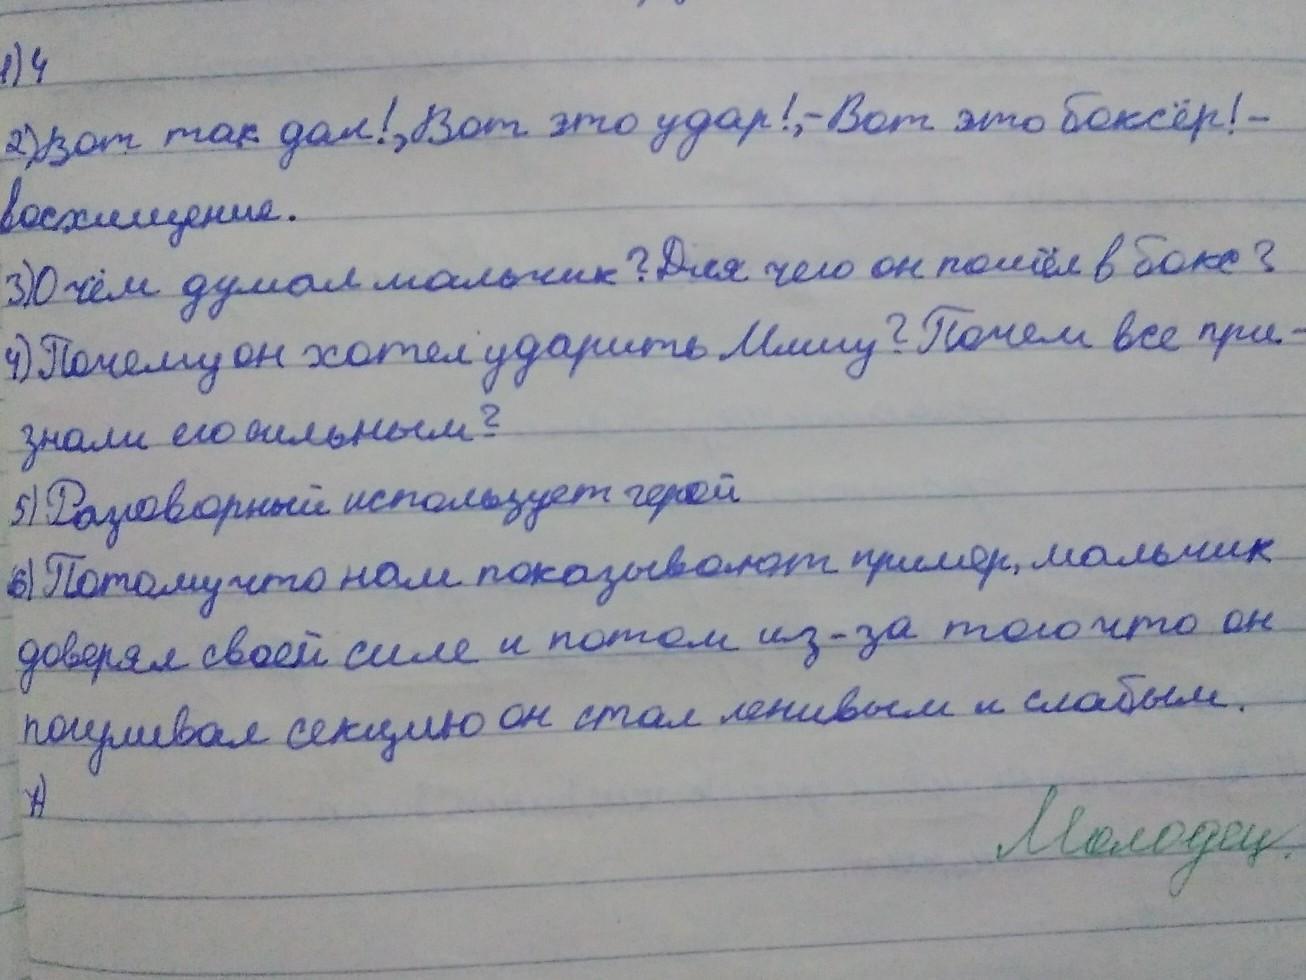 1) 4
2) Вот так дал!, Вот это удар!, - Вот это боксёр! -
восхищение.
3) О чём думал мальчик? Для чего он пошёл в бокс?
4) Почему он хотел ударить Мишу? Почем все при-
знали его сильным?
5) Разговорный использует герой
6) Потому что нам показывают пример, мальчик
доверял своей силе и потом из-за того что он
пощивал секцию он стал ленивым и слабым.
7)
Молодец.